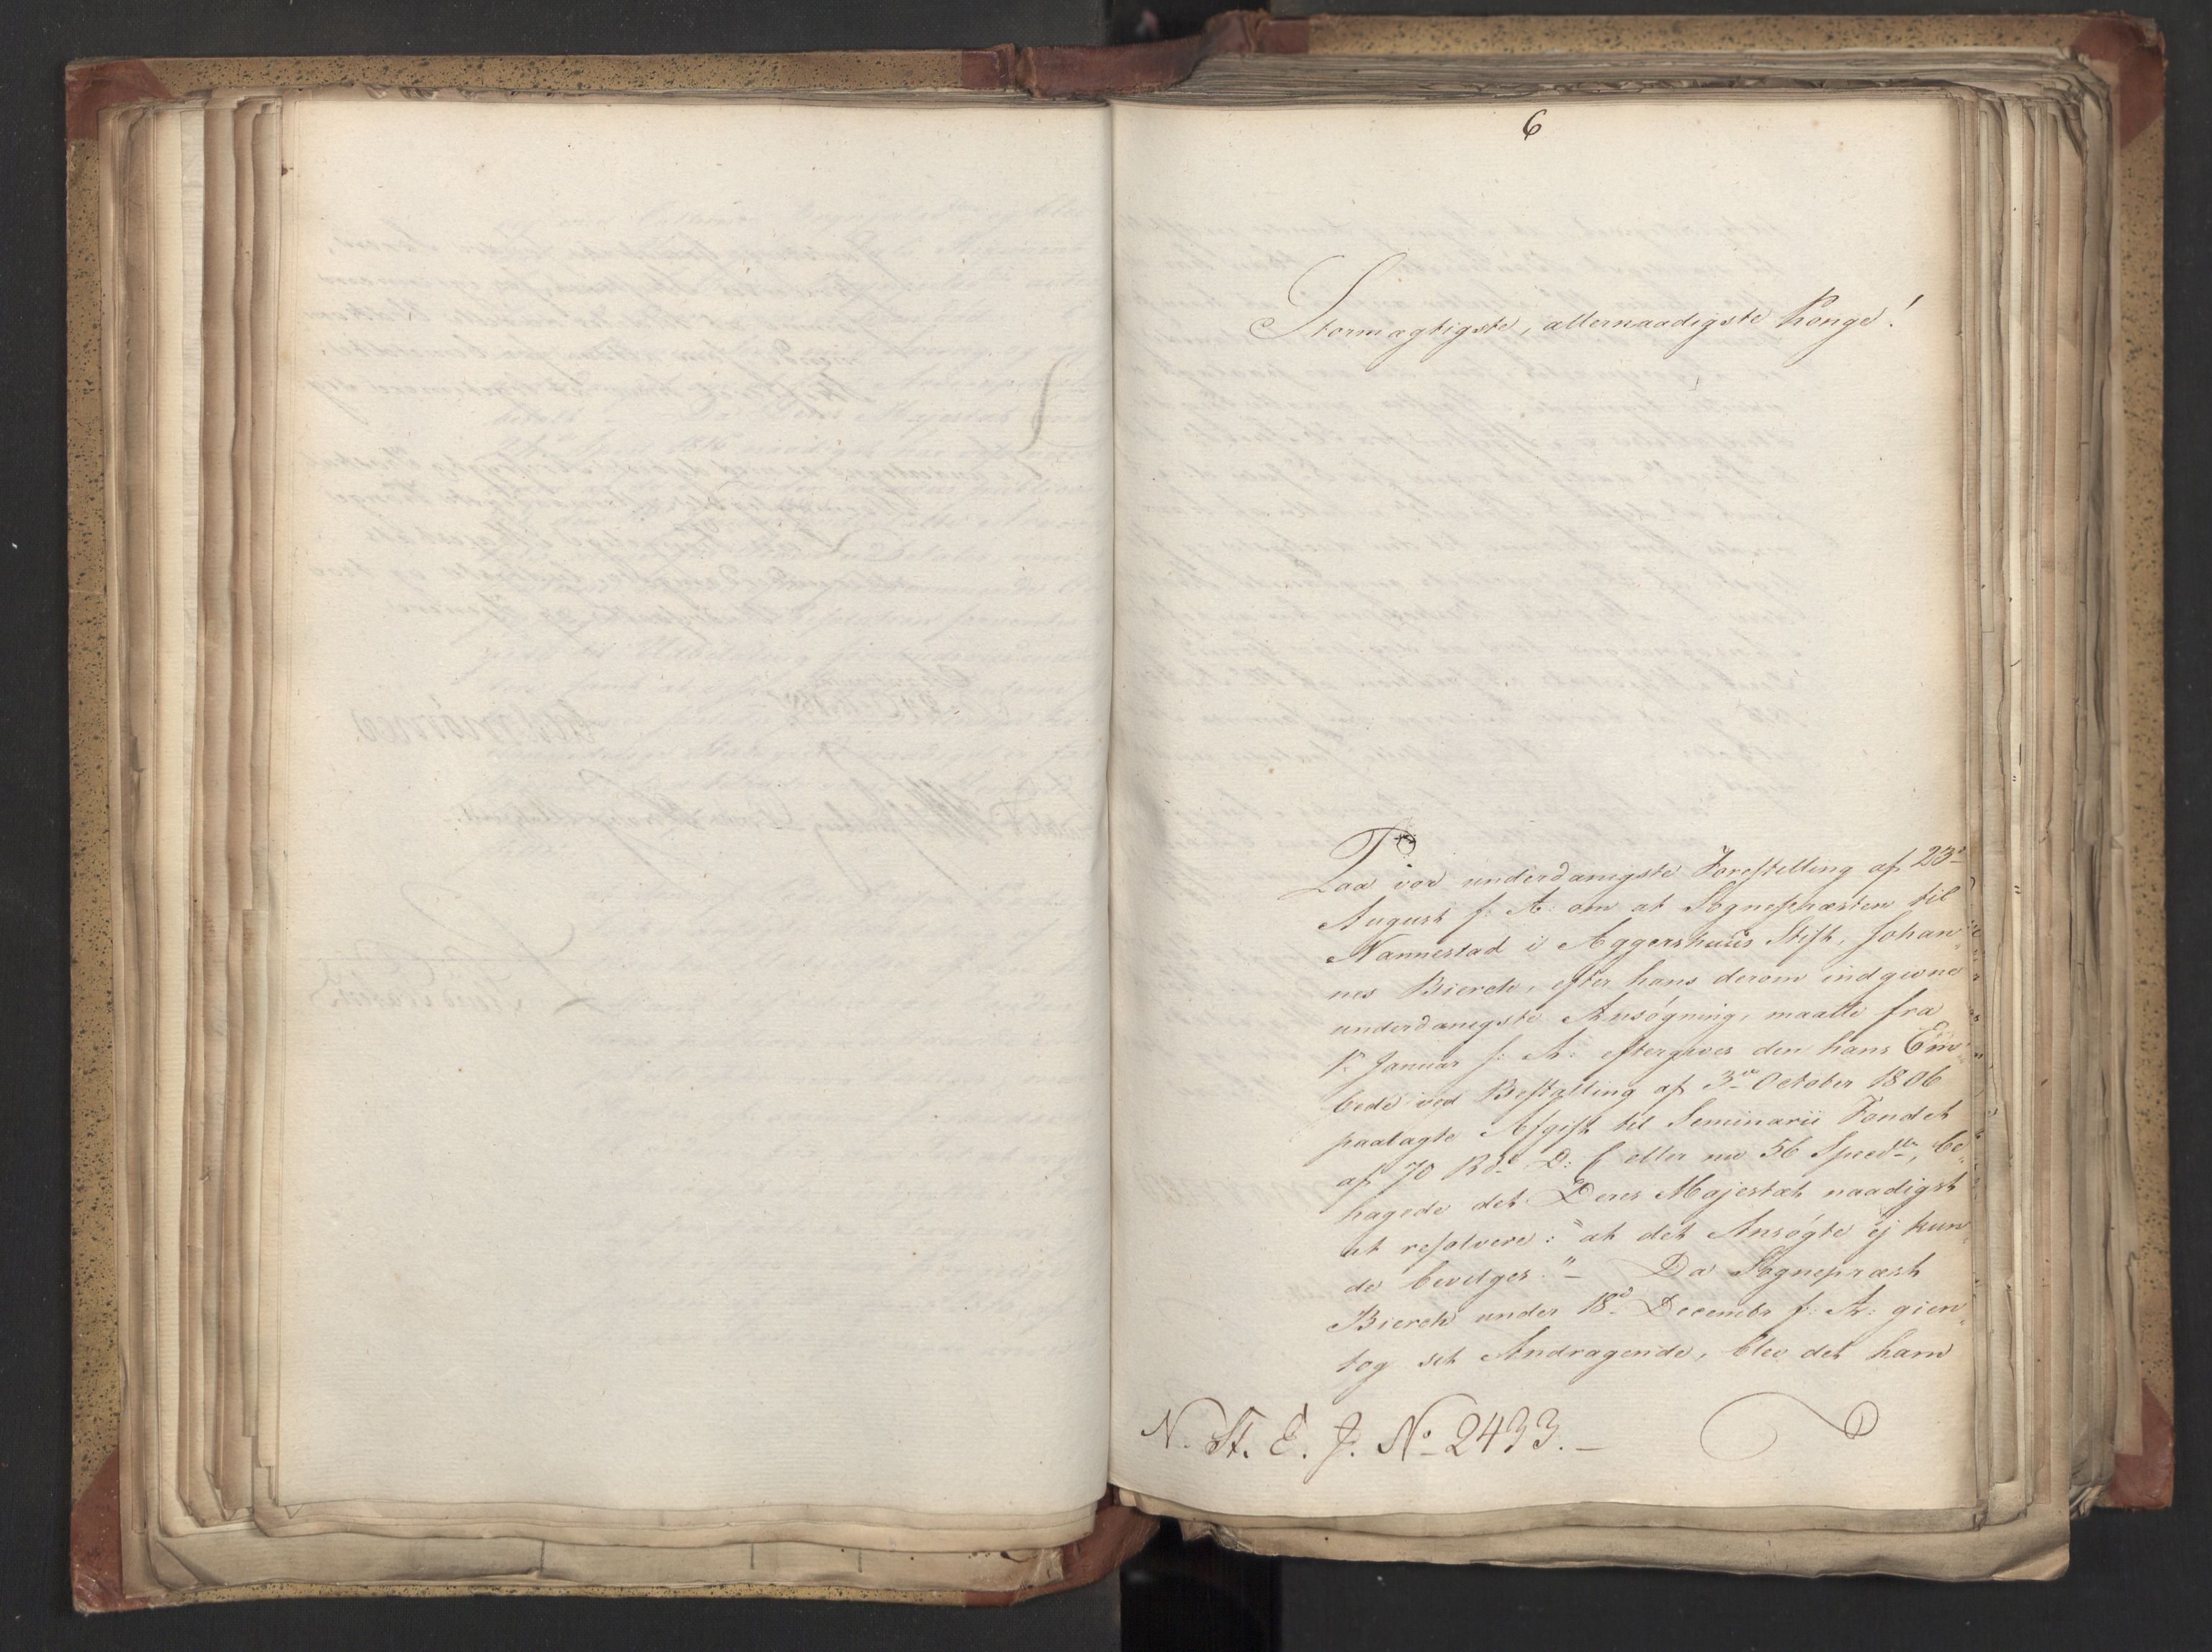 6
Stormægtigste, allernaadigste Konge!
Paa vor underdanigste Forestilling af 23de
August f: A: om at Sognepræsten til
Nannestad i Aggershuus Stift, Johan„
nes Bierch, efter hans derom indgivne
underdanigste Ansøgning, maatte fra
1ste Januar f: A: eftergives den hans Em„
bede ved Bestalling af 3die October 1806
paalagte Afgift til Seminarii Fondet
af 70 Rd D: C eller nu 56 Specdlr, be„
hagede det Deres Majestæt naadigst
at resolvere: "at det Ansøgte ej kun„
de bevilges." – Da Sognepræst
Bierch under 18de Decembr f: A: gien„
tog sit Andragende, blev det ham
N. St. E. J. No 2433. –